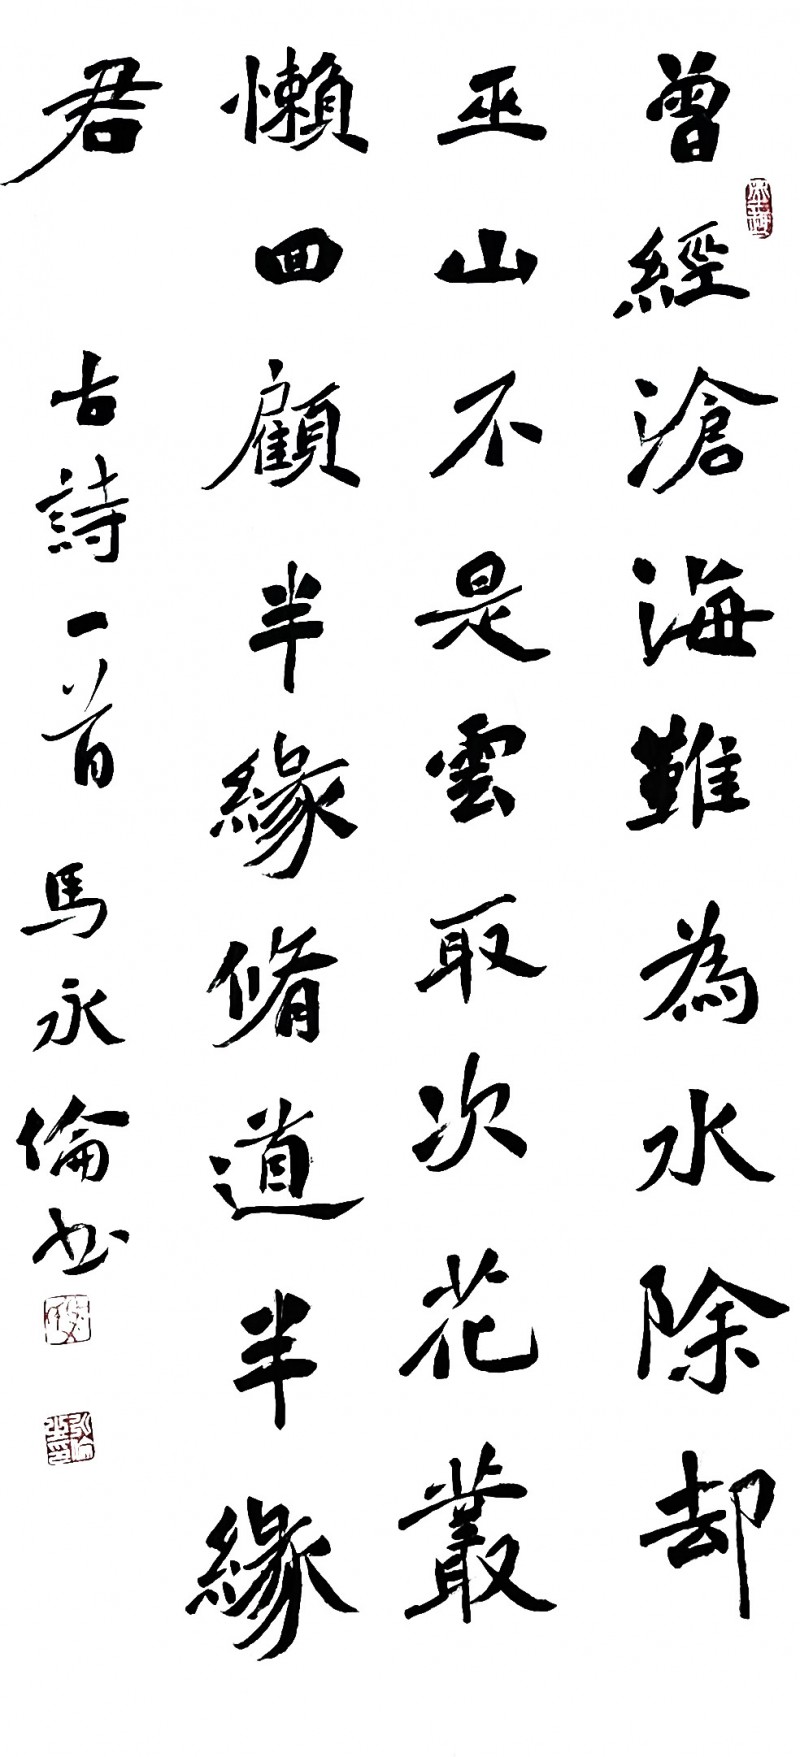 曾經滄海難為水除却
巫山不是雲取次花叢
懶回顧半緣脩道半緣
君
古詩一首 馬永倫书